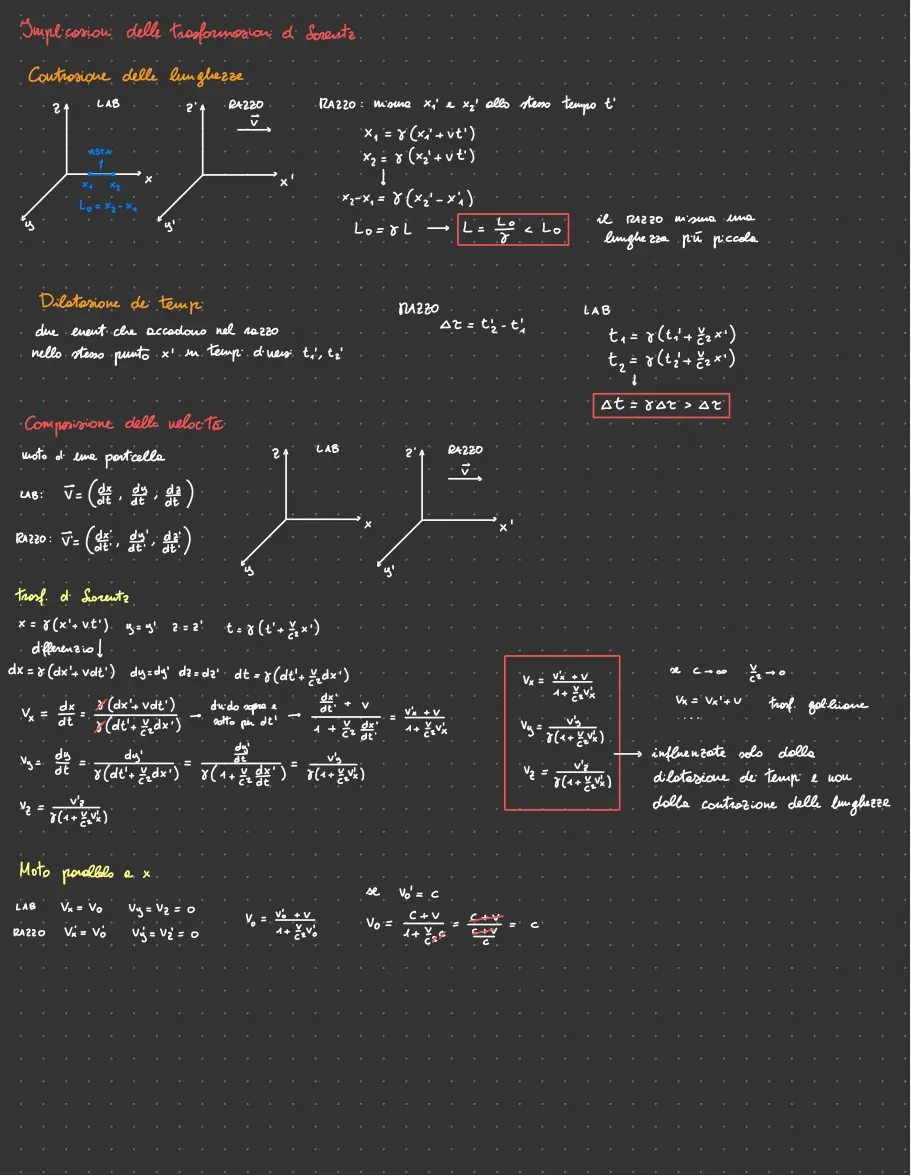 Implicazioni delle trasformazioni di Lorentz
Contrazione delle lunghezze
z LAB z' RAZZO
v⃗
ASTA
x₁ x₂ x x'
L₀ = x₂ - x₁
y y'
RAZZO: misura x₁' e x₂' allo stesso tempo t'
x₁ = γ(x₁' + vt')
x₂ = γ(x₂' + vt')
↓
x₂ - x₁ = γ(x₂' - x₁')
L₀ = γL → L = L₀/γ < L₀
il RAZZO misura una
lunghezza più piccola
Dilatazione dei tempi
due eventi che accadono nel razzo
nello stesso punto x' in tempi diversi t₁', t₂'
RAZZO
Δτ = t₂' - t₁'
LAB
t₁ = γ(t₁' + v/c² x')
t₂ = γ(t₂' + v/c² x')
↓
Δt = γΔτ > Δτ
Composizione delle velocità
moto di una particella
LAB: V⃗ = (dx/dt, dy/dt, dz/dt)
RAZZO: V⃗' = (dx'/dt', dy'/dt', dz'/dt')
z LAB z' RAZZO
v⃗
x x'
y y'
trasf. di Lorentz
x = γ(x' + vt') y = y' z = z' t = γ(t' + v/c² x')
differenzio ↓
dx = γ(dx' + vdt') dy = dy' dz = dz' dt = γ(dt' + v/c² dx')
Vx = dx/dt = γ(dx' + vdt')/γ(dt' + v/c² dx') → divido sopra e sotto per dt' → (dx'/dt' + v)/(1 + v/c² dx'/dt') = (v'x + v)/(1 + v/c² v'x)
Vy = dy/dt = dy'/γ(dt' + v/c² dx') = (dy'/dt')/γ(1 + v/c² dx'/dt') = v'y/γ(1 + v/c² v'x)
Vz = v'z/γ(1 + v/c² v'x)
Vx = (v'x + v)/(1 + v/c² v'x)
Vy = v'y/γ(1 + v/c² v'x)
Vz = v'z/γ(1 + v/c² v'x)
se c→∞ v/c² → 0
Vx = Vx' + v trasf. galileiane
....
→ influenzate solo dalla
dilatazione dei tempi e non
dalla contrazione delle lunghezze
Moto parallelo a x
LAB Vx = V₀ Vy = Vz = 0
RAZZO Vx' = V₀' Vy' = Vz' = 0
V₀ = (v₀' + v)/(1 + v/c² v₀')
se V₀' = c
V₀ = (c + v)/(1 + v/c² c) = (c + v)/((c + v)/c) = c